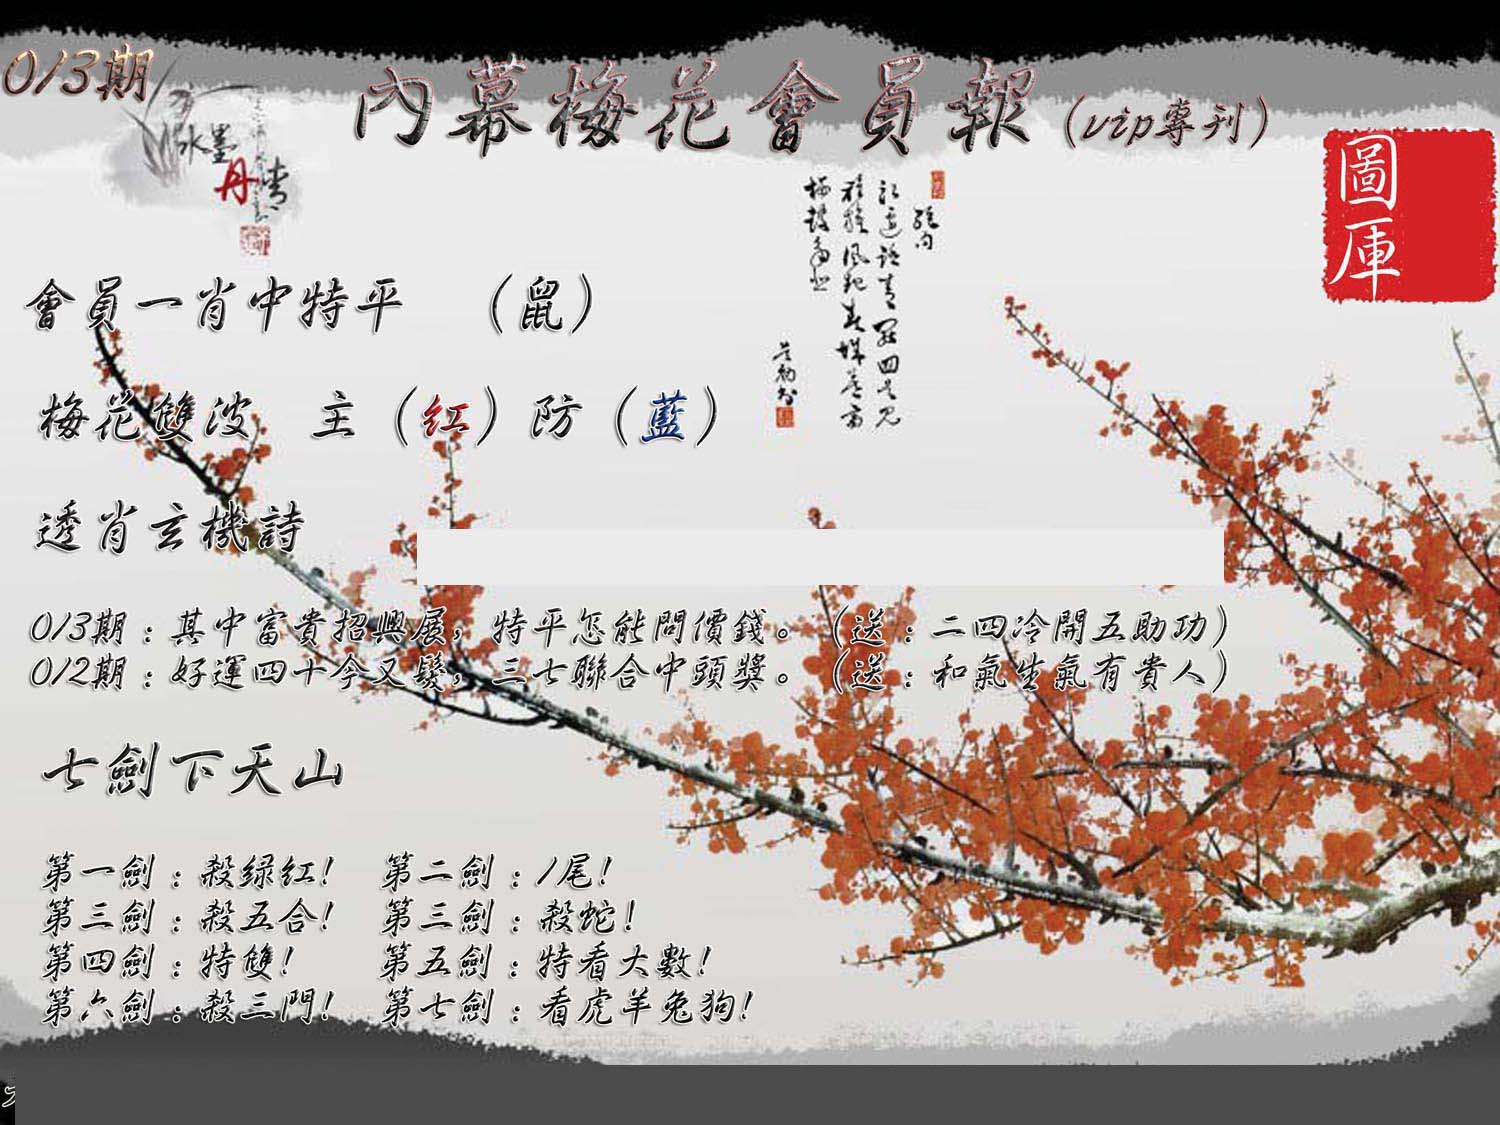 013期
內幕梅花會員報（vip專刊）
水墨
丹青
圖庫
會員一肖中特平　（鼠）
梅花雙波　主（红）防（藍）
透肖玄機詩
013期：其中富貴招興展，特平怎能問價錢。（送：二四冷開五助功）
012期：好運四十今又髮，三七聯合中頭獎。（送：和氣生氣有貴人）
七劍下天山
第一劍：殺绿红!　第二劍：1尾!
第三劍：殺五合!　第三劍：殺蛇!
第四劍：特雙!　第五劍：特看大數!
第六劍：殺三門!　第七劍：看虎羊兔狗!